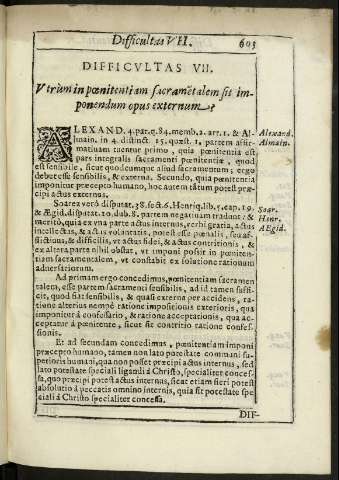 Difficultas VII. 603
DIFFICVLTAS VII.
Vtrùm in pœnitentiam sacramētalem sit im-
ponendum opus externum?
ALEXAND. 4. par. q. 84. memb. 2. art. 1. & Al-
main. in 4. distinct. 15. quæst. 1. partem affir-
matiuam tuentur primò, quia pœnitentia est
pars integralis sacramenti pœnitentiæ, quod
est sensibile, sicut quodcumque aliud sacramentum; ergo
debet esse sensibilis, & externa. Secundo, quia pœnitentia
imponitur præcepto humano, hoc autem tātùm potest præ-
cipi actus externus.
Alexand.
Almain.
Soarez verò disputat. 38. sect. 6. Henriq. lib. 5. cap. 19.
& Ægid. disputat. 10. dub. 8. partem negatiuam tradunt: &
meritò, quia ex vna parte actus internus, verbi gratia, actus
intellectus, & actus voluntatis, potest esse pœnalis, seu af-
flictiuus, & difficilis, vt actus fidei, & actus contritionis, &
ex altera parte nihil obstat, vt imponi possit in pœniten-
tiam sacramentalem, vt constabit ex solutione rationum
aduersariorum.
Soar.
Henr.
AEgid.
Ad primam ergo concedimus, pœnitentiam sacramen
talem, esse partem sacramenti sensibilis, ad id tamen suffi-
cit, quod fiat sensibilis, & quasi externa per accidens, ra-
tione alterius nempè ratione impositionis exterioris, qua
imponitur á confessario, & ratione acceptationis, qua ac-
ceptatur á pœnitente, sicut sit contritio ratione confes-
sionis.
Et ad secundam concedimus, pœnitentiam imponi
præcepto humano, tamen non lato potestate communi su-
perioris humani, qua non posset præcipi actus internus, sed
lato potestate speciali ligandi á Christo, specialiter conces-
sa, quo præcipi potest actus internus, sicut etiam fieri potest
absolutio á peccatis omnino internis, quia fit potestate spe
ciali á Christo specialiter concessa.
DIF-